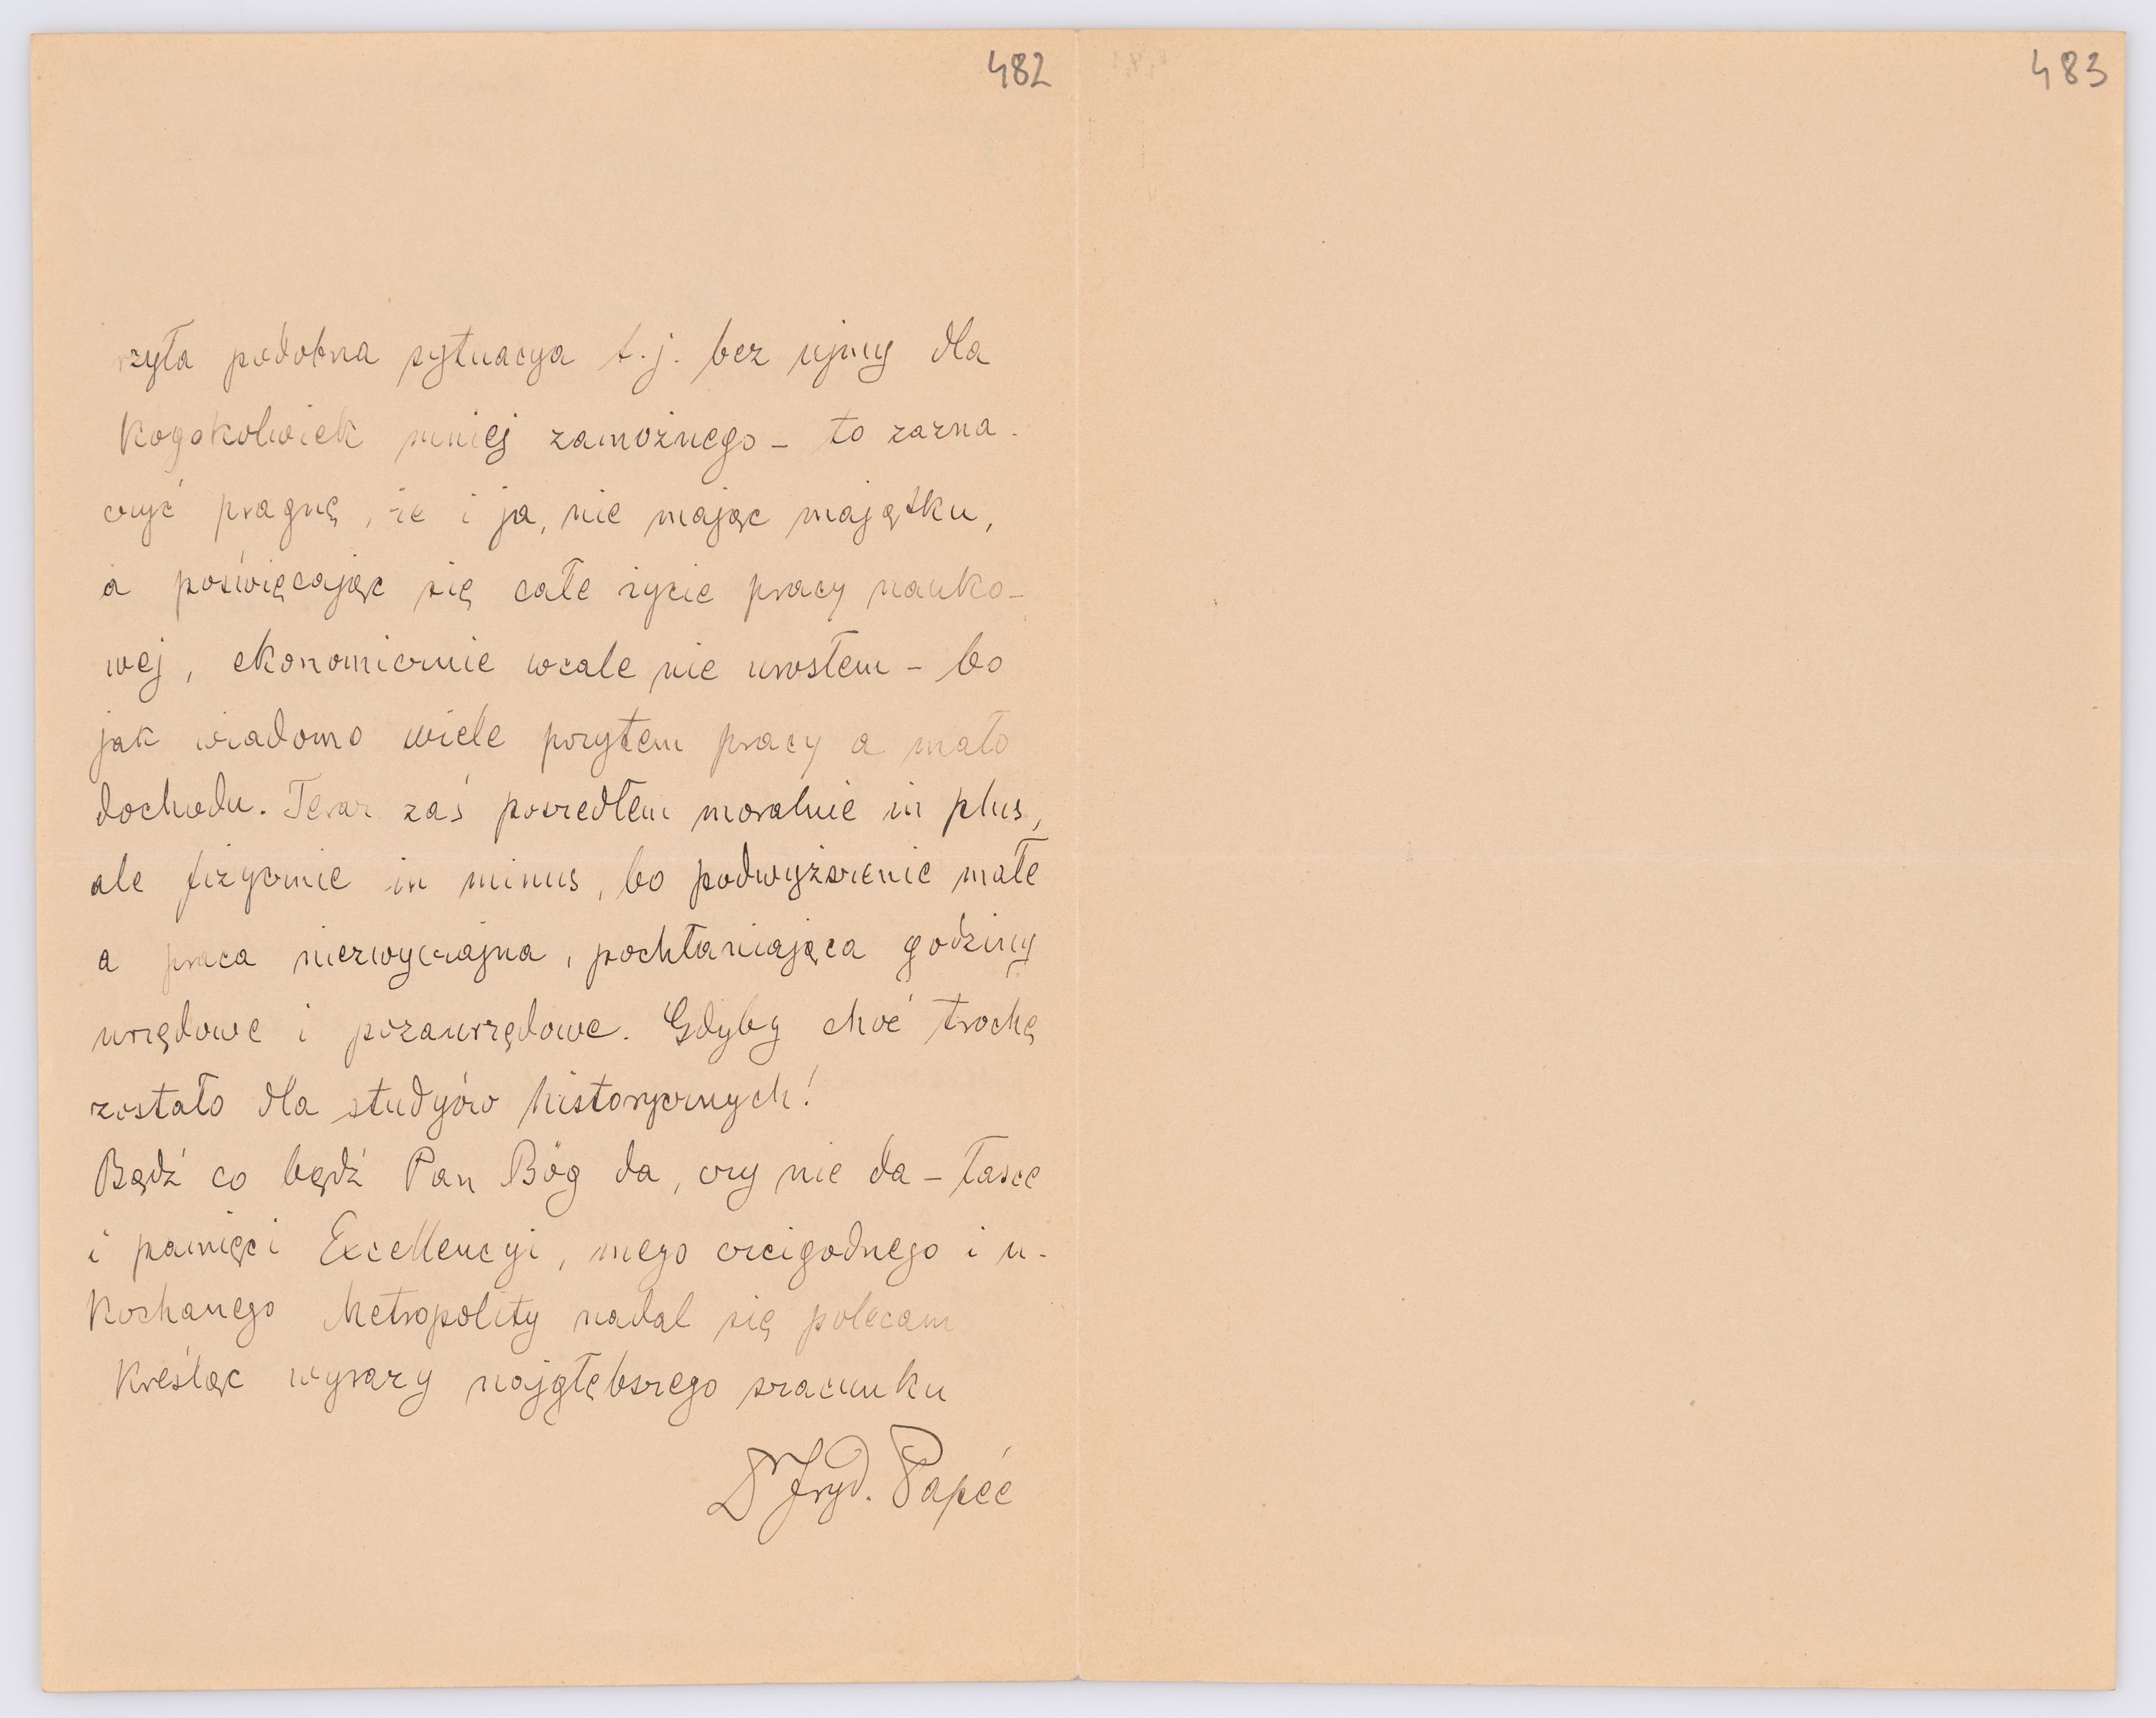 482
483
rzyła podobna sytuacya t.j. bez ujmy dla
kogokolwiek mniej zamożnego – to zazna-
czyć pragnę, że i ja, nie mając majątku,
a poświęcając się całe życie pracy nauko-
wej, ekonomicznie wcale nie urosłem – bo
jak wiadomo wiele przytem pracy a mało
dochodu. Teraz zaś poszedłem moralnie in plus,
ale fizycznie in minus, bo podwyższenie małe
a praca niezwyczajna, pochłaniająca godziny
urzędowe i pozaurzędowe. Gdyby choć trochę
zostało dla studyów historycznych!
Bądź co bądź Pan Bóg da, czy nie da – łasce
i pamięci Excellencyi, mego czcigodnego i u-
kochanego Metropolity nadal się polecam
kreśląc wyrazy najgłębszego szacunku
Dr Fryd. Papée